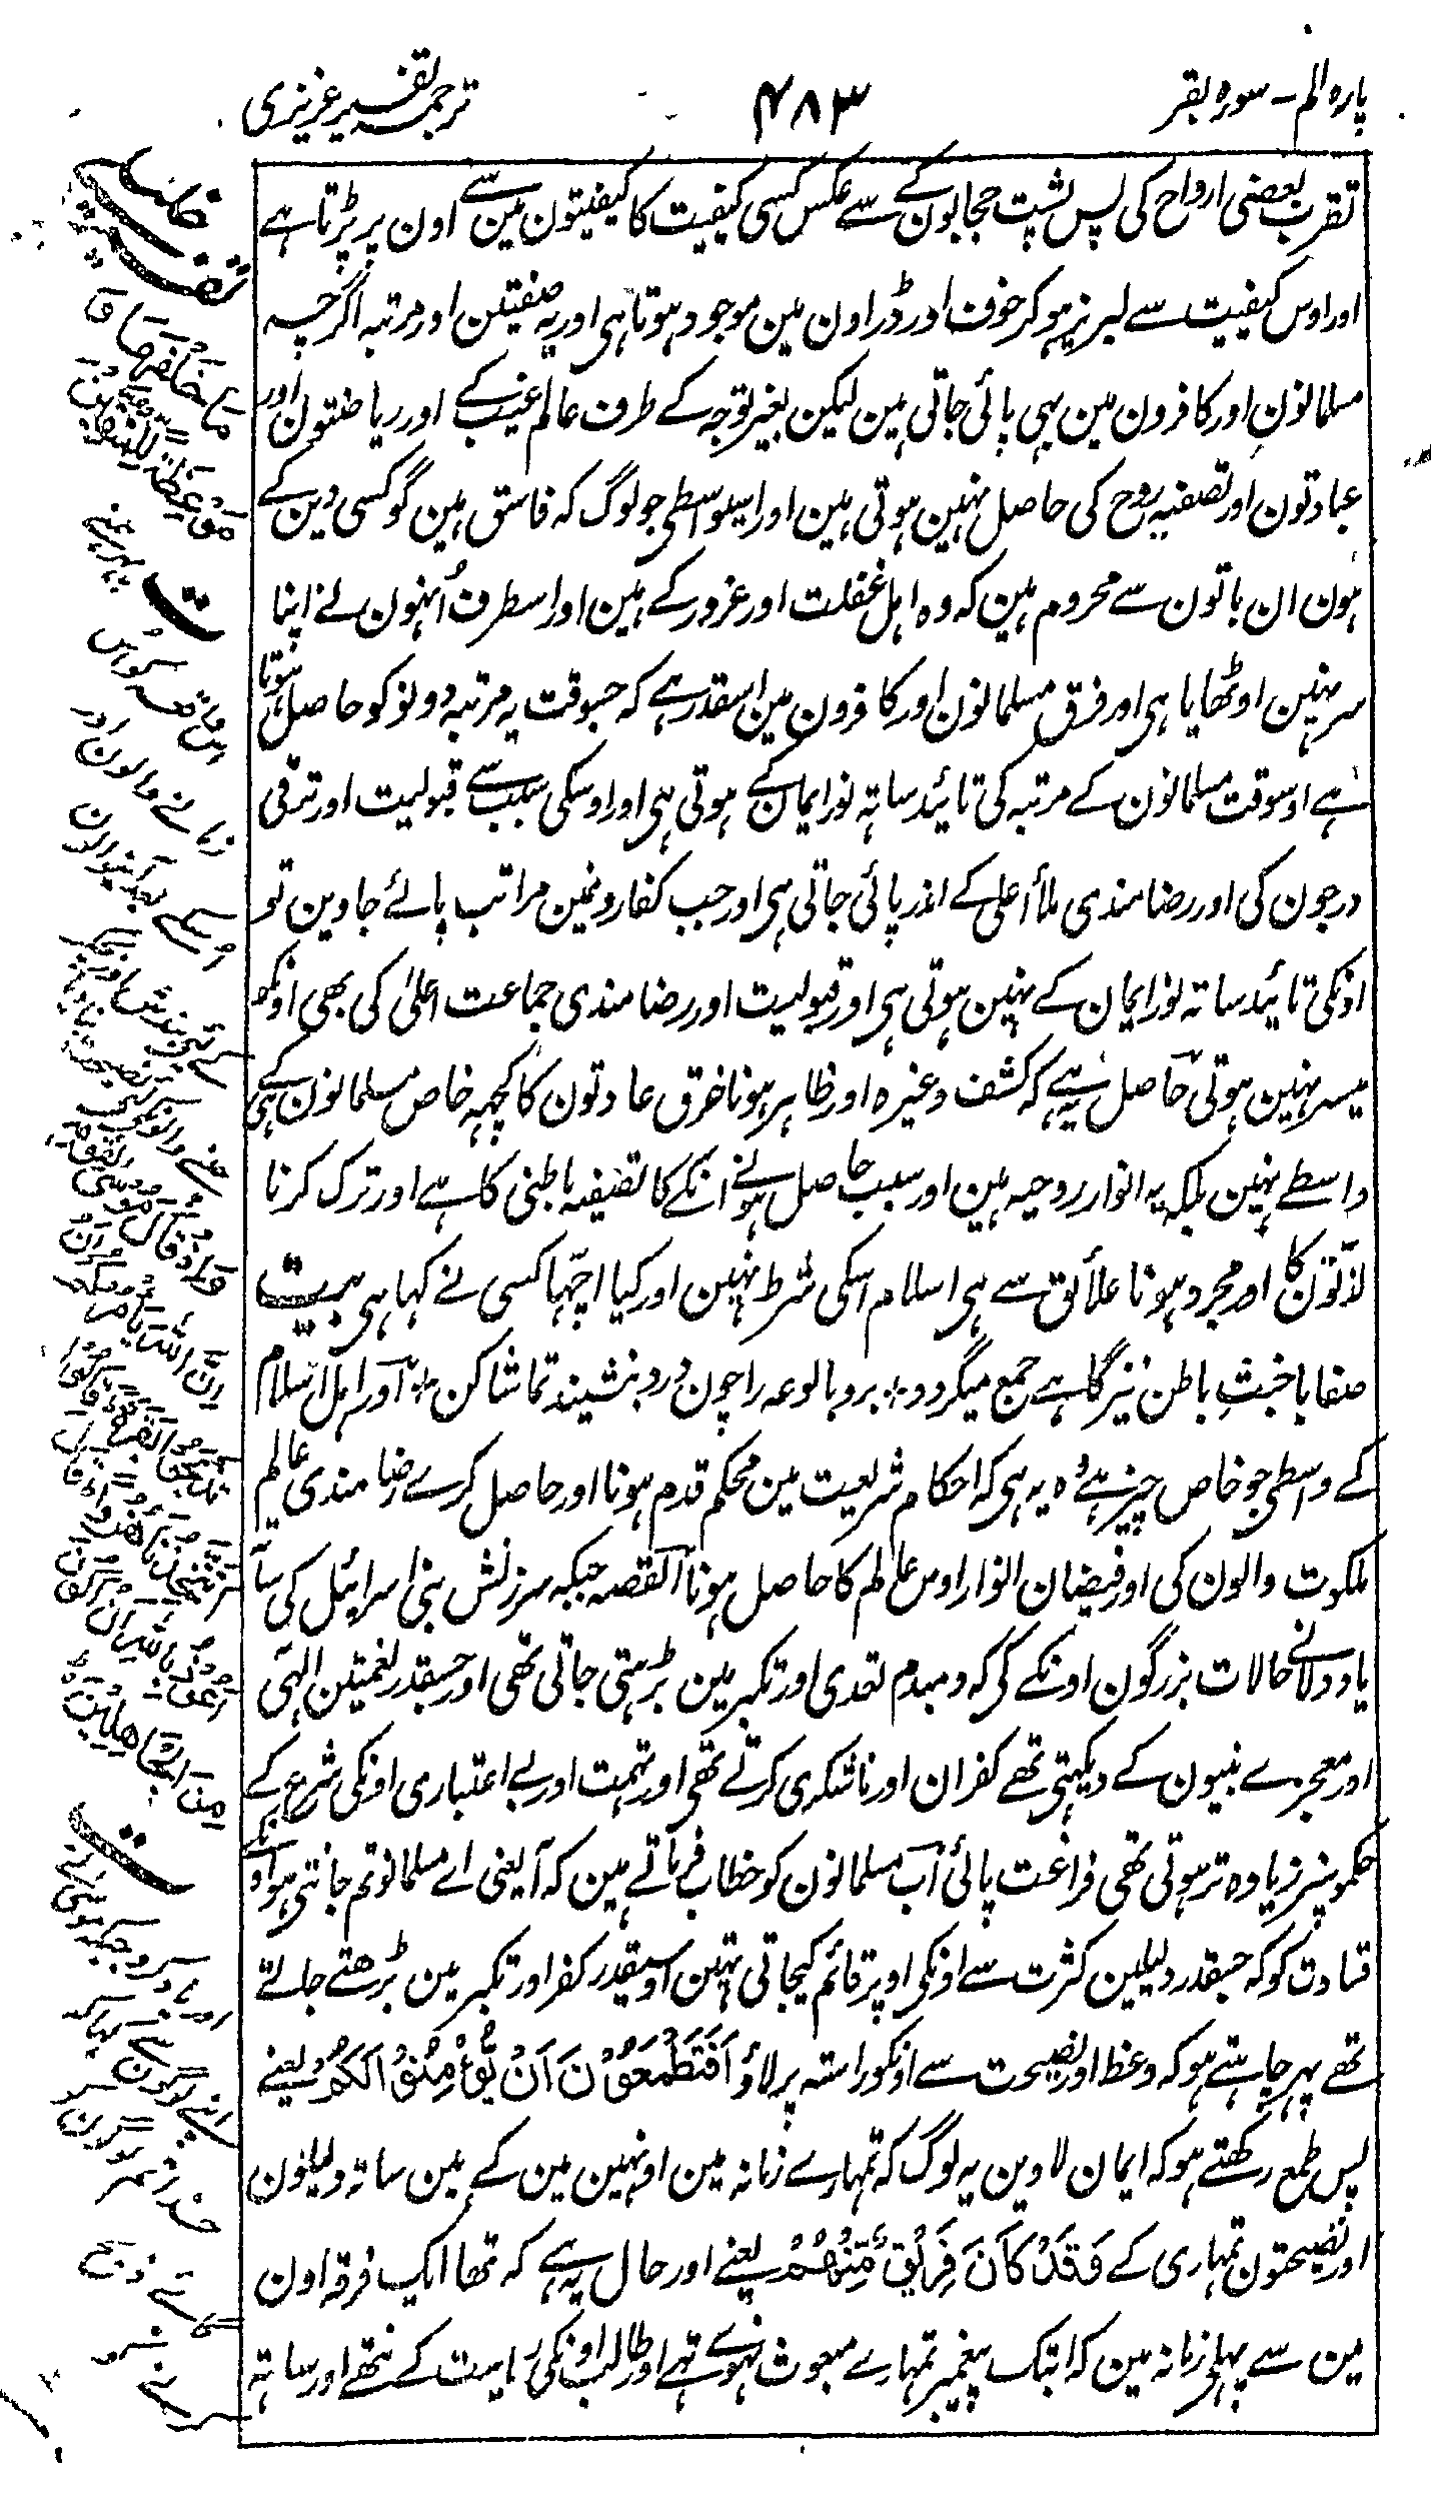 پارہ الم - سورہ بقر
۴۸۳
ترجمہ تفسیر عزیزی
تقرب بعضی ارواح کی پس پشت حجابون کے سے عکس کسی کیفیت کا کیفیتون مین سے اون پر پڑتا ہے
اور اوس کیفیت سے لبریز ہو کر خوف اور ڈر اون مین موجود ہوتا ہی اور یہ صفیتن اور مرتبہ اگرچہ
مسلمانون اور کافرون مین بہی پائی جاتی ہین لیکن بغیر توجہ کے طرف عالم غیب کے اور ریاضتون اور
عبادتون اور تصفیہ روح کی حاصل نہین ہوتی ہین اور اسیواسطی جو لوگ کہ فاسق ہین گو کسی دین کے
ہون ان باتون سے محروم ہین کہ وہ اہل غفلت اور غرور کے ہین اور اسطرف اُنہون نے اپنا
سر نہین اوٹھایا ہی اور فرق مسلمانون اور کافرون مین اسقدر ہے کہ جسوقت یہ مرتبہ دونو کو حاصل ہوتا
ہے اوسوقت مسلمانون کے مرتبہ کی تائید ساتہ نور ایمان کے ہوتی ہی اور اوسکی سبب سے قبولیت اور ترقی
درجون کی اور رضامندی ملأ اعلی کے اندر پائی جاتی ہی اور جب کفار ونمین مراتب پائے جاوین تو
اونکی تائید ساتہ نور ایمان کے نہین ہوتی ہی اور قبولیت اور رضامندی جماعت اعلیٰ کی بھی اونکو
میسر نہین ہوتی حاصل یہ ہے کہ کشف وغیرہ اور ظاہر ہونا خرق عادتون کا کچہہ خاص مسلمانون ہی کے
واسطے نہین بلکہ یہ انوار روحیہ ہین اور سبب حاصل ہونے انکے کا تصفیہ باطنی کا ہے اور ترک کرنا
لذتون کا اور مجرد ہونا علائق سے ہی اسلام اسکی شرط نہین اور کیا اچہا کسی نے کہا ہی بیت
صفا با خبثِ باطن نیز گاہے جمع میگردد ٭ برو بالوعہ را چون دُرد بنشیند تماشا کن ٭ اور اہل اسلام
کے واسطی جو خاص چیز ہے وہ یہ ہی کہ احکام شریعت مین محکم قدم ہونا اور حاصل کرے رضامندی عالم
ملکوت والون کی اور فیضان انوار اوس عالم کا حاصل ہونا القصہ جبکہ سرزنش بنی اسرائیل کی ساتہ
یاد دلانے حالات بزرگون اونکے کی کہ دمبدم تعدی اور تکبر مین بڑہتی جاتی تھی اور جسقدر نعمیتن الہی
اور معجزے نبیون کے دیکہتی تھے کفران اور ناشکری کرتے تھی اور تہمت اور بے اعتباری اونکی شرع کے
حکمونپر زیادہ تر ہوتی تھی فراغت پائی اب مسلمانون کو خطاب فرماتے ہین کہ آیا یعنی اے مسلمانو تم جانتی ہو اونکے
قساوت کو کہ جسقدر دلیلین کثرت سے اونکی اوپر قائم کیجاتی تہین اوسیقدر کفر اور تکبر مین بڑھتے جاتے
تھے پہر چاہتے ہو کہ وعظ اور نصیحت سے اونکو راستہ پر لاؤ اَفَتَطْمَعُوْنَ اَنْ يُّؤْمِنُوْا لَكُمْ یعنے
پس طمع رکھتے ہو کہ ایمان لاوین یہ لوگ کہ تمہارے زمانہ مین اونہین مین کے ہین ساتہ دلیلون
اور نصیحتون تمہاری کے وَقَدْ كَانَ فَرِيْقٌ مِّنْهُمْ یعنے اور حال یہ ہے کہ تھا ایک فرقہ اون
مین سے پہلی زمانہ مین کہ ابتک پیغمبر تمہارے مبعوث نہوے تہے اور طالب اونکی کے تھے اور ساتہ
خَلْفَهَا وَ
مَوْعِظَةً لِّلْمُتَّقِيْنَ
وَاِذْ قَالَ مُوْسٰى لِقَوْمِهٖ
اِنَّ اللّٰهَ يَاْمُرُكُمْ اَنْ
تَذْبَحُوْا بَقَرَةً قَالُوْا
اَتَتَّخِذُنَا هُزُوًا قَالَ
اَعُوْذُ بِاللّٰهِ اَنْ اَكُوْنَ
مِنَ الْجَاهِلِيْنَ